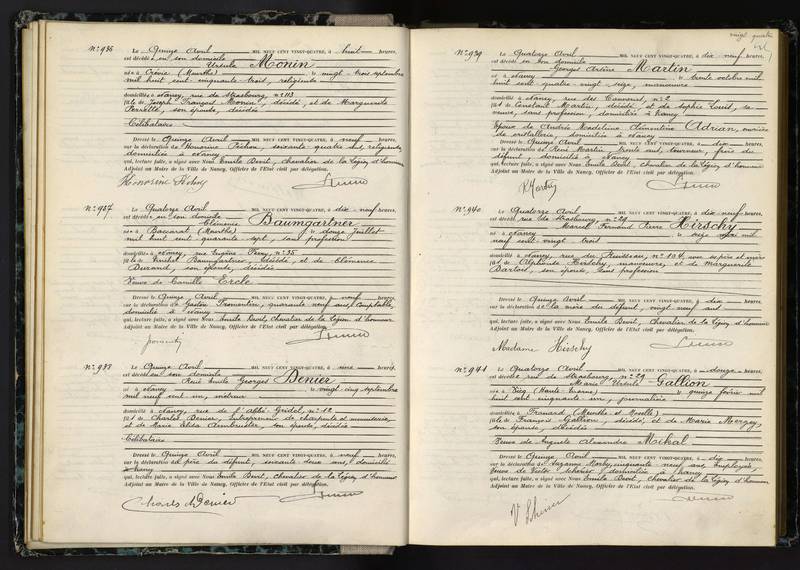 N° 936 Le Quinze Avril MIL NEUF CENT VINGT-QUATRE, à huit heures,
est décédé e en son domicile
Ursule Monin
né e à Crévic (Meurthe) le vingt trois septembre
mil huit cent cinquante trois, religieuse
domicilié e à Nancy, rue de Strasbourg, n° 113
fille de Joseph François Monin, décédé, et de Marguerite
Perrette, son épouse, décédée
Célibataire
Dressé le Quinze Avril MIL NEUF CENT VINGT-QUATRE, à neuf heures,
sur la déclaration de Honorine soixante quatre ans, religieuse,
domiciliée à Nancy
qui, lecture faite, a signé avec Nous Emile Devit, chevalier de la Légion d'honneur
Adjoint au Maire de la Ville de Nancy, Officier de l'Etat civil par délégation.
N° 937 Le Quatorze Avril MIL NEUF CENT VINGT-QUATRE, à dix neuf heures,
est décédé e en son domicile
Clémence Baumgartner
né e à Baccarat (Meurthe) le douze Juillet
mil huit cent quarante sept, sans profession
domicilié e à Nancy, rue Eugène Ferry, n° 35
fille de Baumgartner, décédé, et de Clémence
Durand, son épouse, décédée
Veuve de Camille Ercle
Dressé le Quinze Avril MIL NEUF CENT VINGT-QUATRE, à neuf heures,
sur la déclaration de Gaston quarante neuf ans, Comptable,
domicilié à Nancy
qui, lecture faite, a signé avec Nous Emile Devit, Chevalier de la Légion d'honneur
Adjoint au Maire de la Ville de Nancy, Officier de l'Etat civil par délégation.
N° 938 Le Quinze Avril MIL NEUF CENT VINGT-QUATRE, à une heures,
est décédé en son domicile
René Emile Georges Denier
né à Nancy le vingt cinq septembre
mil neuf cent un,
domicilié à Nancy, rue de l'Abbé Gridel, n° 12
fils de Charles Denier, entrepreneur de charpente et menuiserie,
et de Marie Elisa Armbruster, son épouse, décédée
Célibataire
Dressé le Quinze Avril MIL NEUF CENT VINGT-QUATRE, à neuf heures,
sur la déclaration du père du défunt, soixante deux ans, domicilié
à Nancy
qui, lecture faite, a signé avec Nous Emile Devit, chevalier de la Légion d'honneur
Adjoint au Maire de la Ville de Nancy, Officier de l'Etat civil par délégation.
Charles Denier
vingt quatre
N° 939 Le Quatorze Avril MIL NEUF CENT VINGT-QUATRE, à dix neuf heures,
est décédé en son domicile
Georges Arsène Martin
né à Nancy le trente octobre mil
huit cent quatre vingt seize, manœuvre
domicilié à Nancy, rue des n° 2
fils de Constant Martin, décédé, et de Sophie Louis, sa
veuve, sans profession, domiciliée à Nancy
Epoux de Andrée Madeleine Clémentine Adrian, ouvrière
de cristallerie, domiciliée à Nancy
Dressé le Quinze Avril MIL NEUF CENT VINGT-QUATRE, à dix heures,
sur la déclaration de René Martin, trente ans, frère du
défunt, domicilié à Nancy
qui, lecture faite, a signé avec Nous Emile Devit, chevalier de la Légion d'honneur
Adjoint au Maire de la Ville de Nancy, Officier de l'Etat civil par délégation.
R Martin
N° 940 Le Quatorze Avril MIL NEUF CENT VINGT-QUATRE, à dix neuf heures,
est décédé rue de Strasbourg, n° 29
Marcel Fernand Pierre Hirschy
né à Nancy le seize mai mil
neuf cent vingt trois
domicilié à Nancy, rue du Ruisseau, n° 104, avec ses père et mère
fils de Alphonse Hirschy, manœuvre, et de Marguerite
Bartold, son épouse, sans profession
Dressé le Quinze Avril MIL NEUF CENT VINGT-QUATRE, à dix heures,
sur la déclaration de la mère du défunt, vingt neuf ans
qui, lecture faite, a signé avec Nous Emile Devit, Chevalier de la Légion d'honneur
Adjoint au Maire de la Ville de Nancy, Officier de l'Etat civil par délégation.
Madame Hirschy
N° 941 Le Quatorze Avril MIL NEUF CENT VINGT-QUATRE, à douze heures,
est décédé e rue de Strasbourg, n° 29
Marie Ursule Gallion
né e à (Haute-Vienne) le quinze février mil
huit cent cinquante un, journalière
domicilié e à Frouard (Meurthe et Moselle)
fille de François Gallion, décédé, et de Marie
son épouse, décédée
Veuve de Auguste Alexandre Mikal
Dressé le Quinze Avril MIL NEUF CENT VINGT-QUATRE, à dix heures,
sur la déclaration de Suzanne cinquante neuf ans, employée,
domiciliée à Nancy
qui, lecture faite, a signé avec Nous Emile Devit, chevalier de la Légion d'honneur
Adjoint au Maire de la Ville de Nancy, Officier de l'Etat civil par délégation.